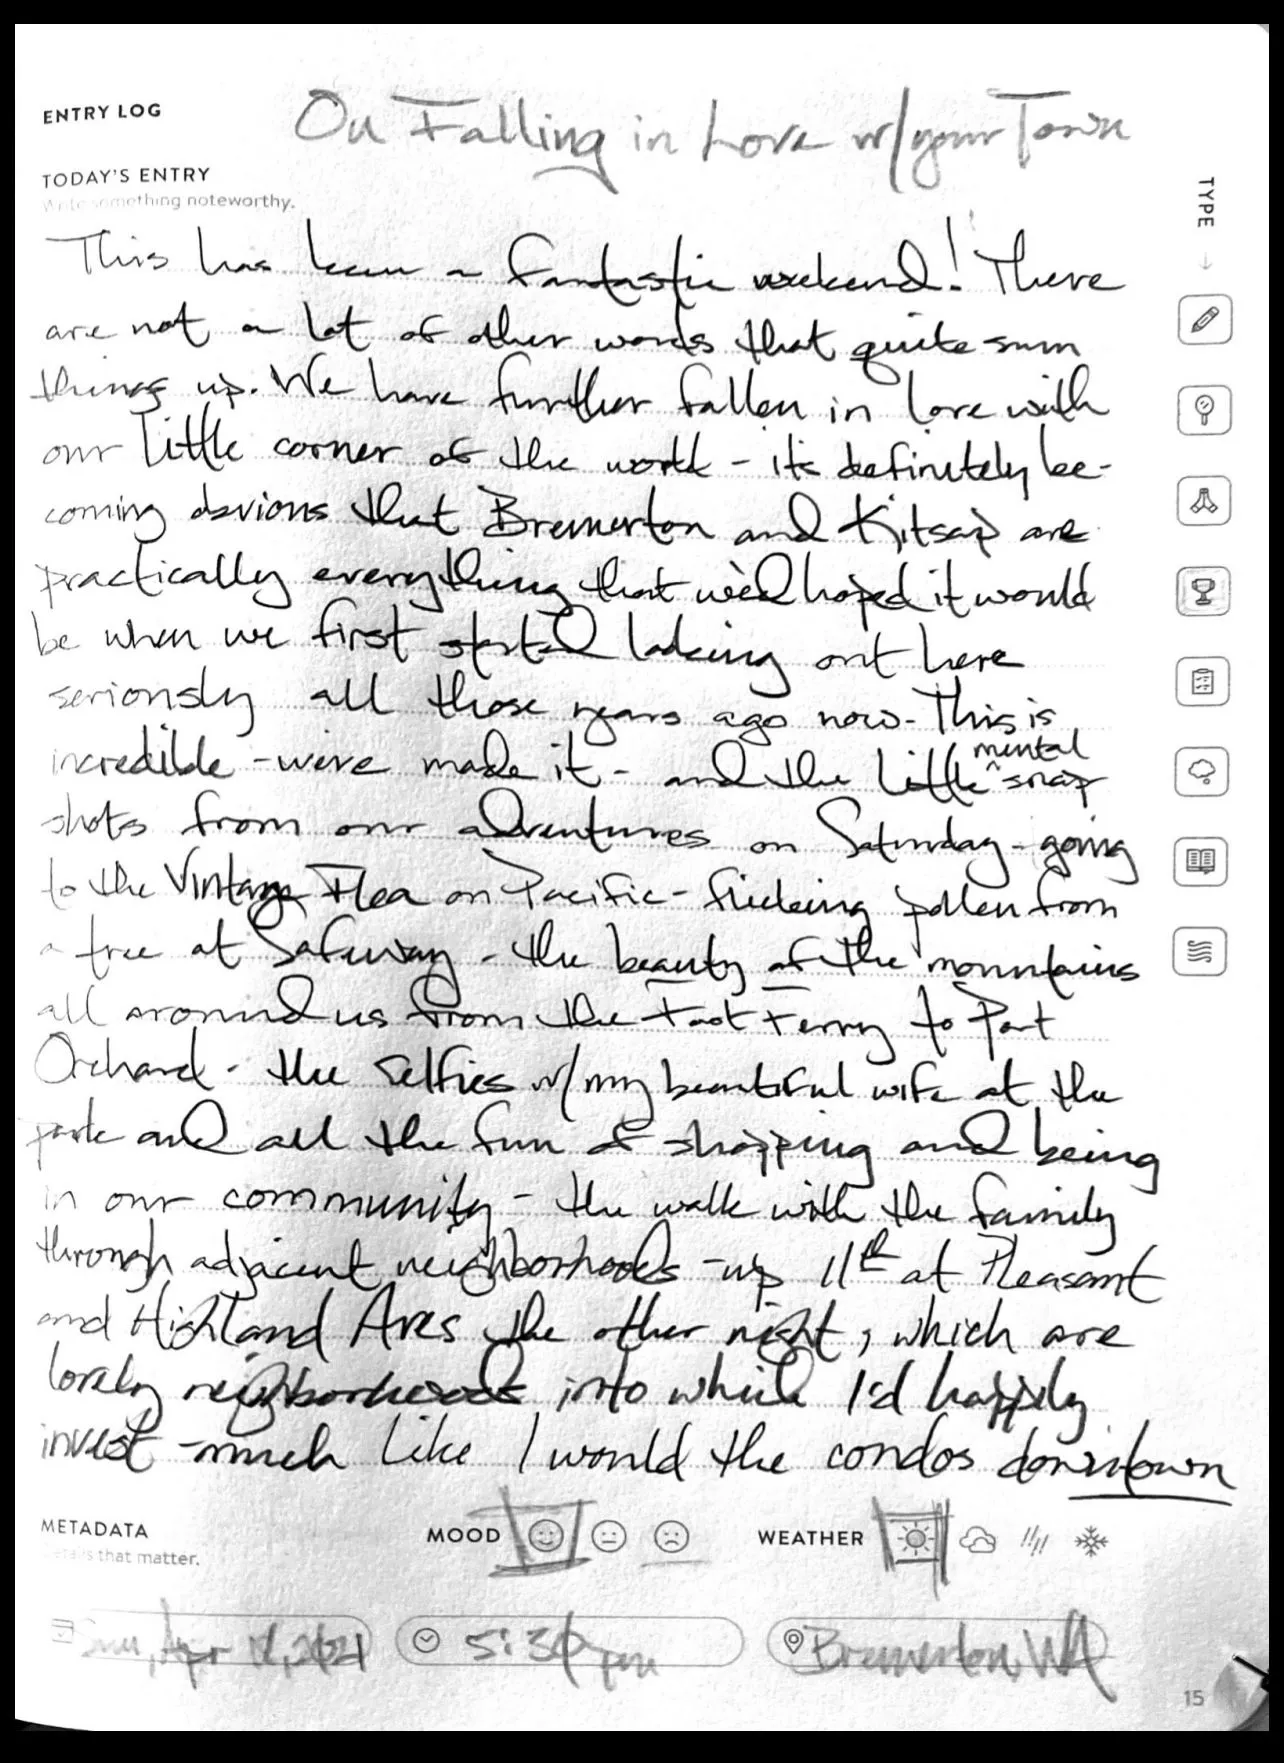 ENTRY LOG
On Falling in Love w/your Town
TODAY'S ENTRY
Write something noteworthy.
TYPE
This has been a fantastic weekend! There
are not a lot of other words that quite sum
things up. We have further fallen in love with
our little corner of the world - its definitely be-
coming obvious that Bremerton and Kitsap are
practically everything that we'd hoped it would
be when we first started looking out here
seriously all those years ago now. This is
incredible - we've made it - and the little ^mental snap
shots from our adventures on Saturday - going
to the Vintage Flea on Pacific - flicking pollen from
a tree at Safeway - the beauty of the mountains
all around us from the Foot Ferry to Port
Orchard - the selfies w/my beautiful wife at the
park and all the fun of shopping and being
in our community - the walk with the family
through adjacent neighborhoods - up 11th at Pleasant
and Highland Aves the other night, which are
lovely neighborhoods into which I'd happily
invest - much like I would the condos downtown
METADATA
Details that matter.
MOOD
WEATHER
Sun, Apr 18, 2021
5:30pm
Bremerton, WA
15